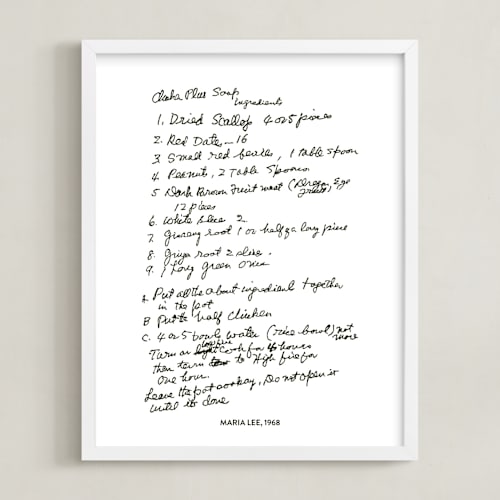 Plus Soup
Ingredients
1. Dried Scallop 4 or 5 pieces
2. Red Date _ 16
3. Small red beates, 1 Table spoon
4. Peanuts, 2 Table Spoons
5 Dark Brown Fruit meat (Dragon Eye
fruit)
12 pieces
6. White 2
7. root 1 or half a long piece
8. root 2 slice.
9. 1 Long green
A. Put all the about ingredient together
in the pot
B Put half chicken
C. 4 or 5 bowls water (rice bowl) not
more
low fire
Turn on light Cook for 4 hours
then turn to High fire for
One hour.
Leave the pot, Do not open it
until its done
MARIA LEE, 1968